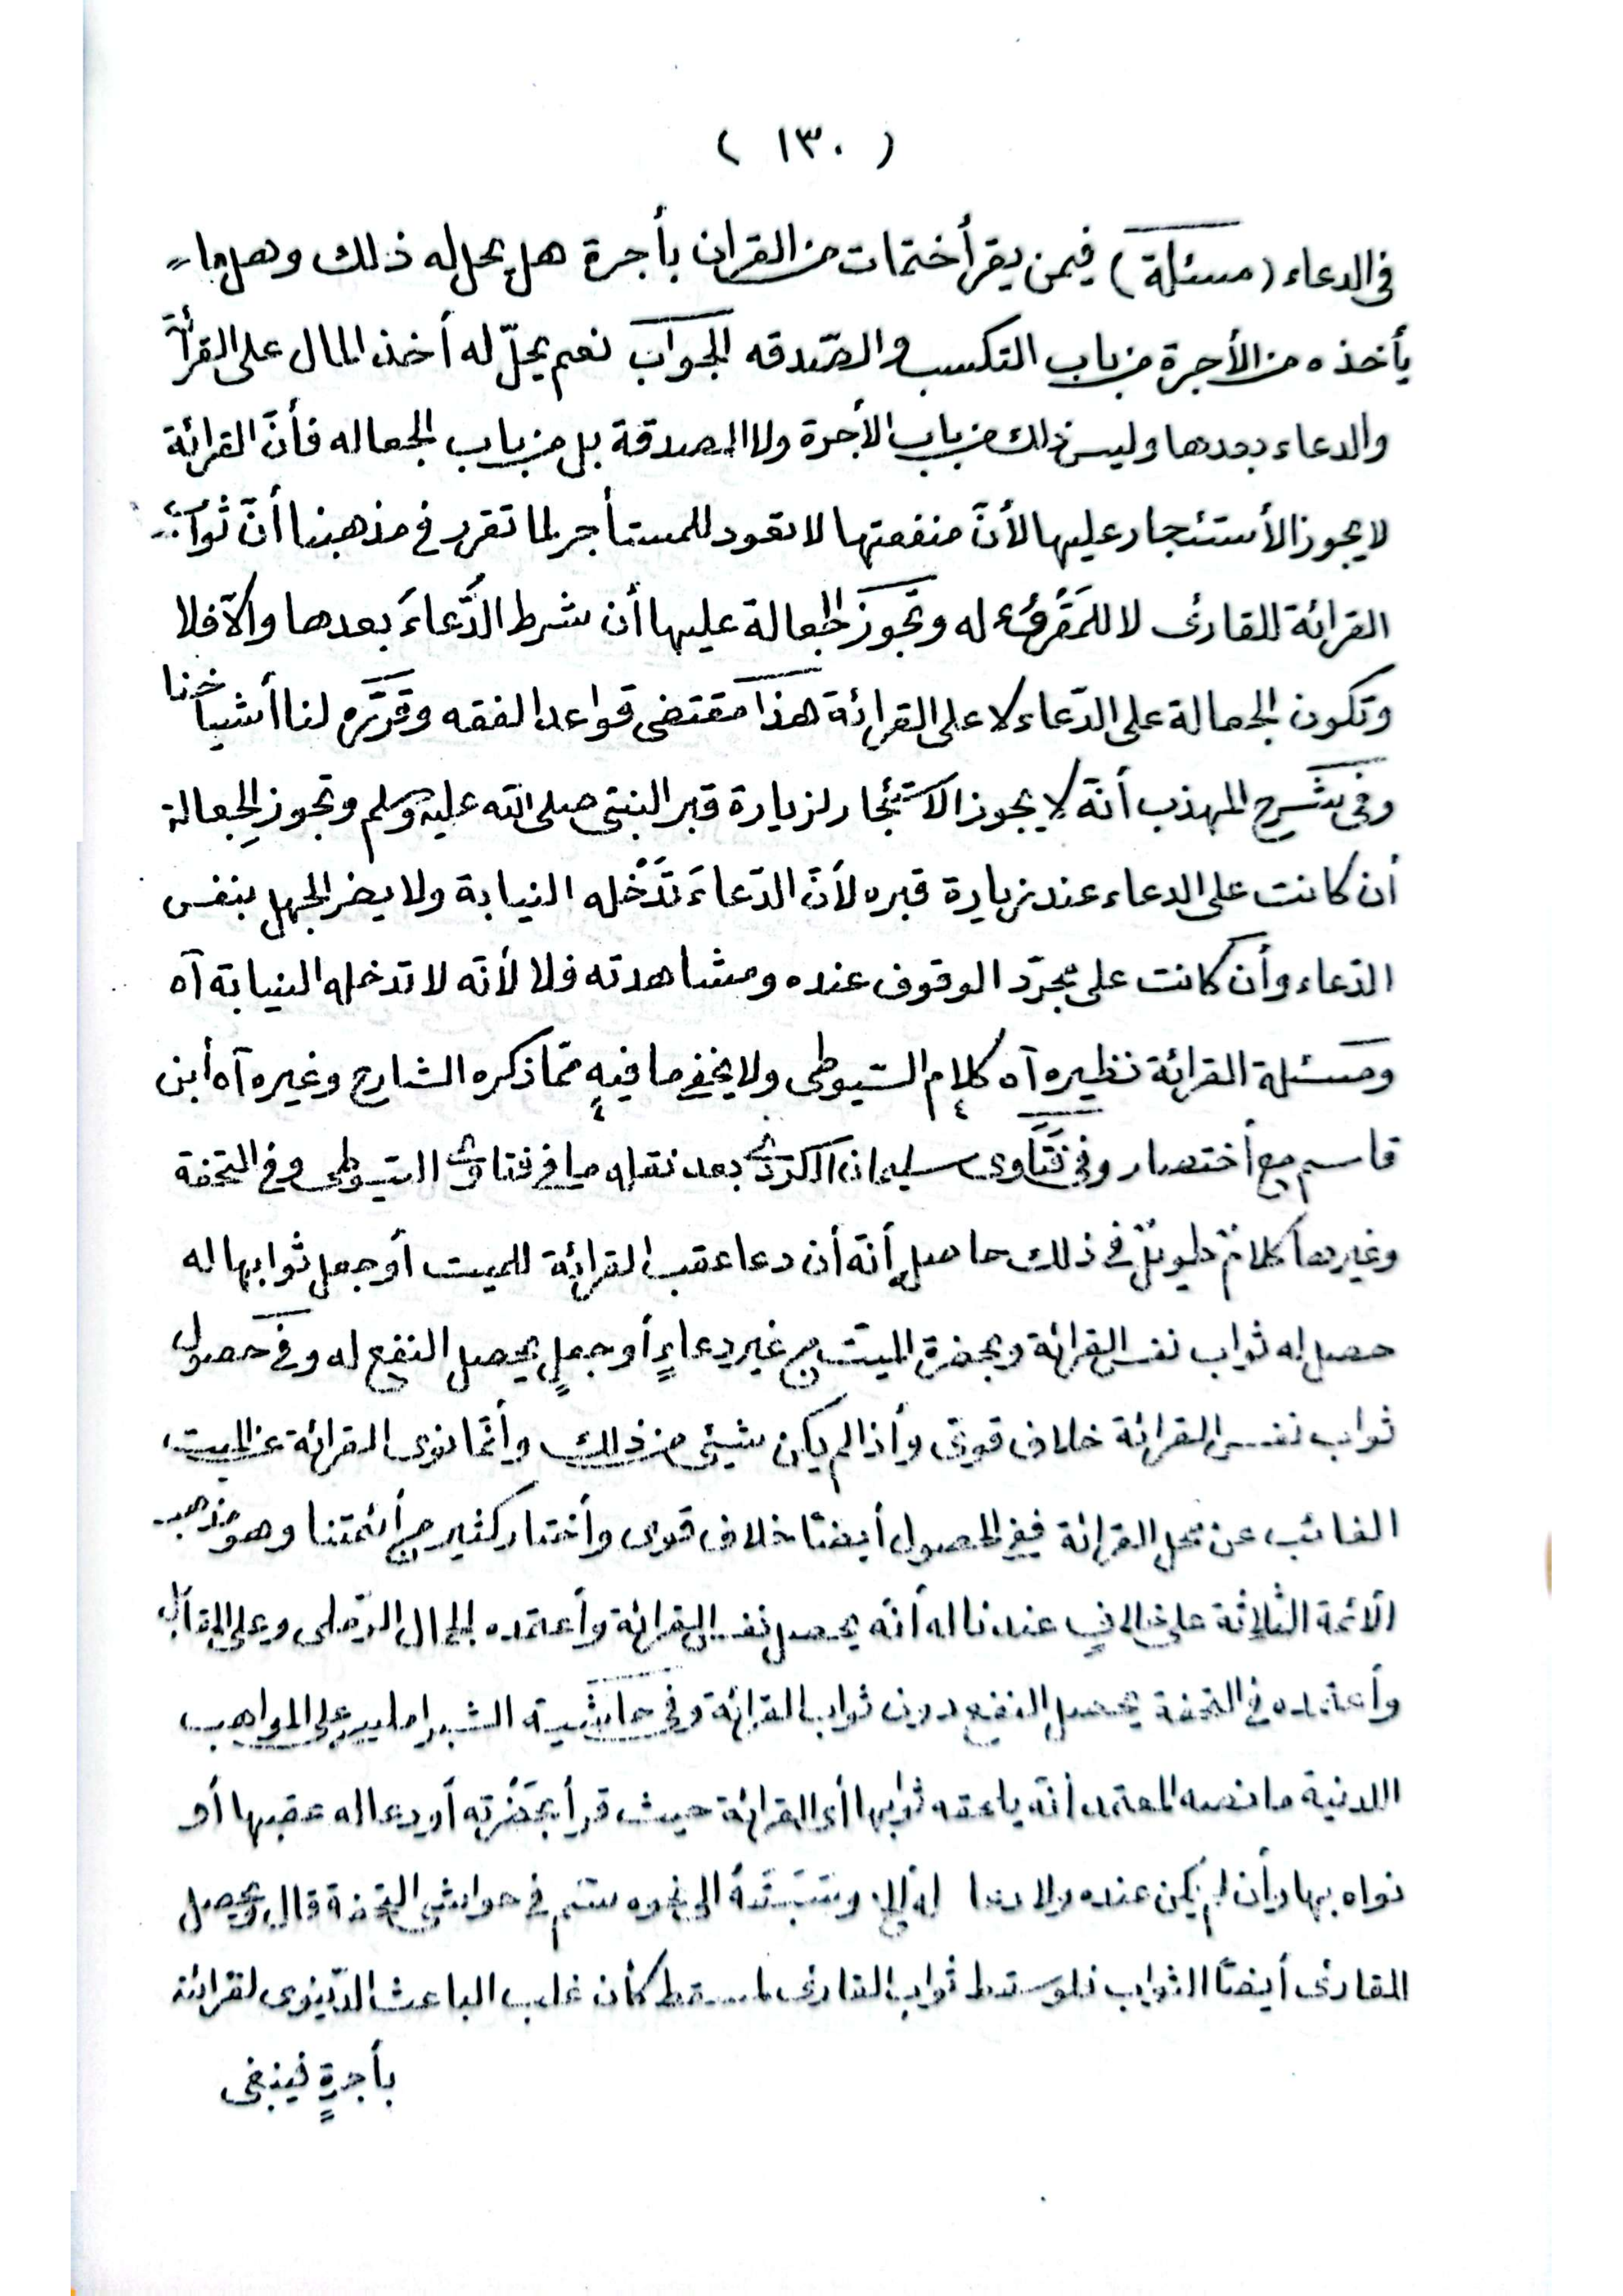 ( ١٣٠ )
فى الدعاء (مسئلة) فيمن يقرأ ختمات من القران بأجرة هل يحل له ذلك وهل ما
يأخذه من الأجرة من باب التكسب والصّدقه الجواب نعم يحلّ له أخذ المال على القرأة
والدعاء بعدها وليس ذلك من باب الأجرة ولا الصدقة بل من باب الجعاله فأنّ القرائة
لا يجوز الأستئجار عليها لأنّ منفعتها لا تعود للمستأجر لما تقرر فى مذهبنا أنّ ثواب
القرائة للقارئ لا للمَقْرُوء له وتجوز الجعالة عليها أن شرط الدُّعاءَ بعدها والّا فلا
وتكون الجعالة على الدّعاء لا على القرائة هذا مقتضى قواعد الفقه وقرّره لنا أشياخنا
وفى شرح المهذب أنّه لا يجوز الاستئجار لزيارة قبر النبىّ صلى الله عليه وسلم وتجوز الجِعالة
أن كانت على الدعاء عند زيارة قبره لأنّ الدّعاءَ تدْخله النيابة ولا يضر الجهل بنفس
الدّعاء وأن كانت على مجرّد الوقوف عنده ومشاهدته فلا لأنّه لا تدخله النيابة آه
ومسئلة القرائة نظيره آه كلام السّيوطى ولا يخفى ما فيه ممّا ذكره الشارح وغيره آه أبن
قاسم مع أختصار وفى فتاوى سليمان الكردى بعد نقله ما فى فتاوى السّيوطى وفى التحفة
وغيرها كلامٌ طويلٌ فى ذلك حاصله أنّه أن دعا عقب القرائة للميت أو جعل ثوابها له
حصل له ثواب نفس القرائة وبحضرة الميّت من غير دعاءٍ أو جعلٍ يحصل النفع له وفى حصول
ثواب نفس القرائة خلاف قوىّ وأذا لم يكن شيئى من ذلك وأنّما نوى القرائة عن الميت
الغائب عن محل القرائة ففى الحصول أيضًا خلاف قوى وأختار كثير من أئمتنا وهو مذهب
الائمة الثّلاثة على خلافٍ عندنا له أنّه يحصل نفس القرائة وأعتمده الجمال الرّملى وعلى المقابل
وأعتمده فى التحفة يحصل النفع دون ثواب القرائة وفى حاشية الشبراملسى على المواهب
اللدنية ما نصه المعتمد أنّه يلحقه ثوابها أى القرائة حيث قرأ بحضْرته أو دعا له عقبها أو
نواه بها وأن لم يكن عنده ولا دعا له الخ وسَبَقَهُ الى نحوه سم فى حواشى التحفة قال ويحصل
للقارئ أيضًا الثواب فلو سقط ثواب القارئ لمسقط كأن غلب الباعث الدّنيوى لقرائته
بأجرةٍ فينبغى